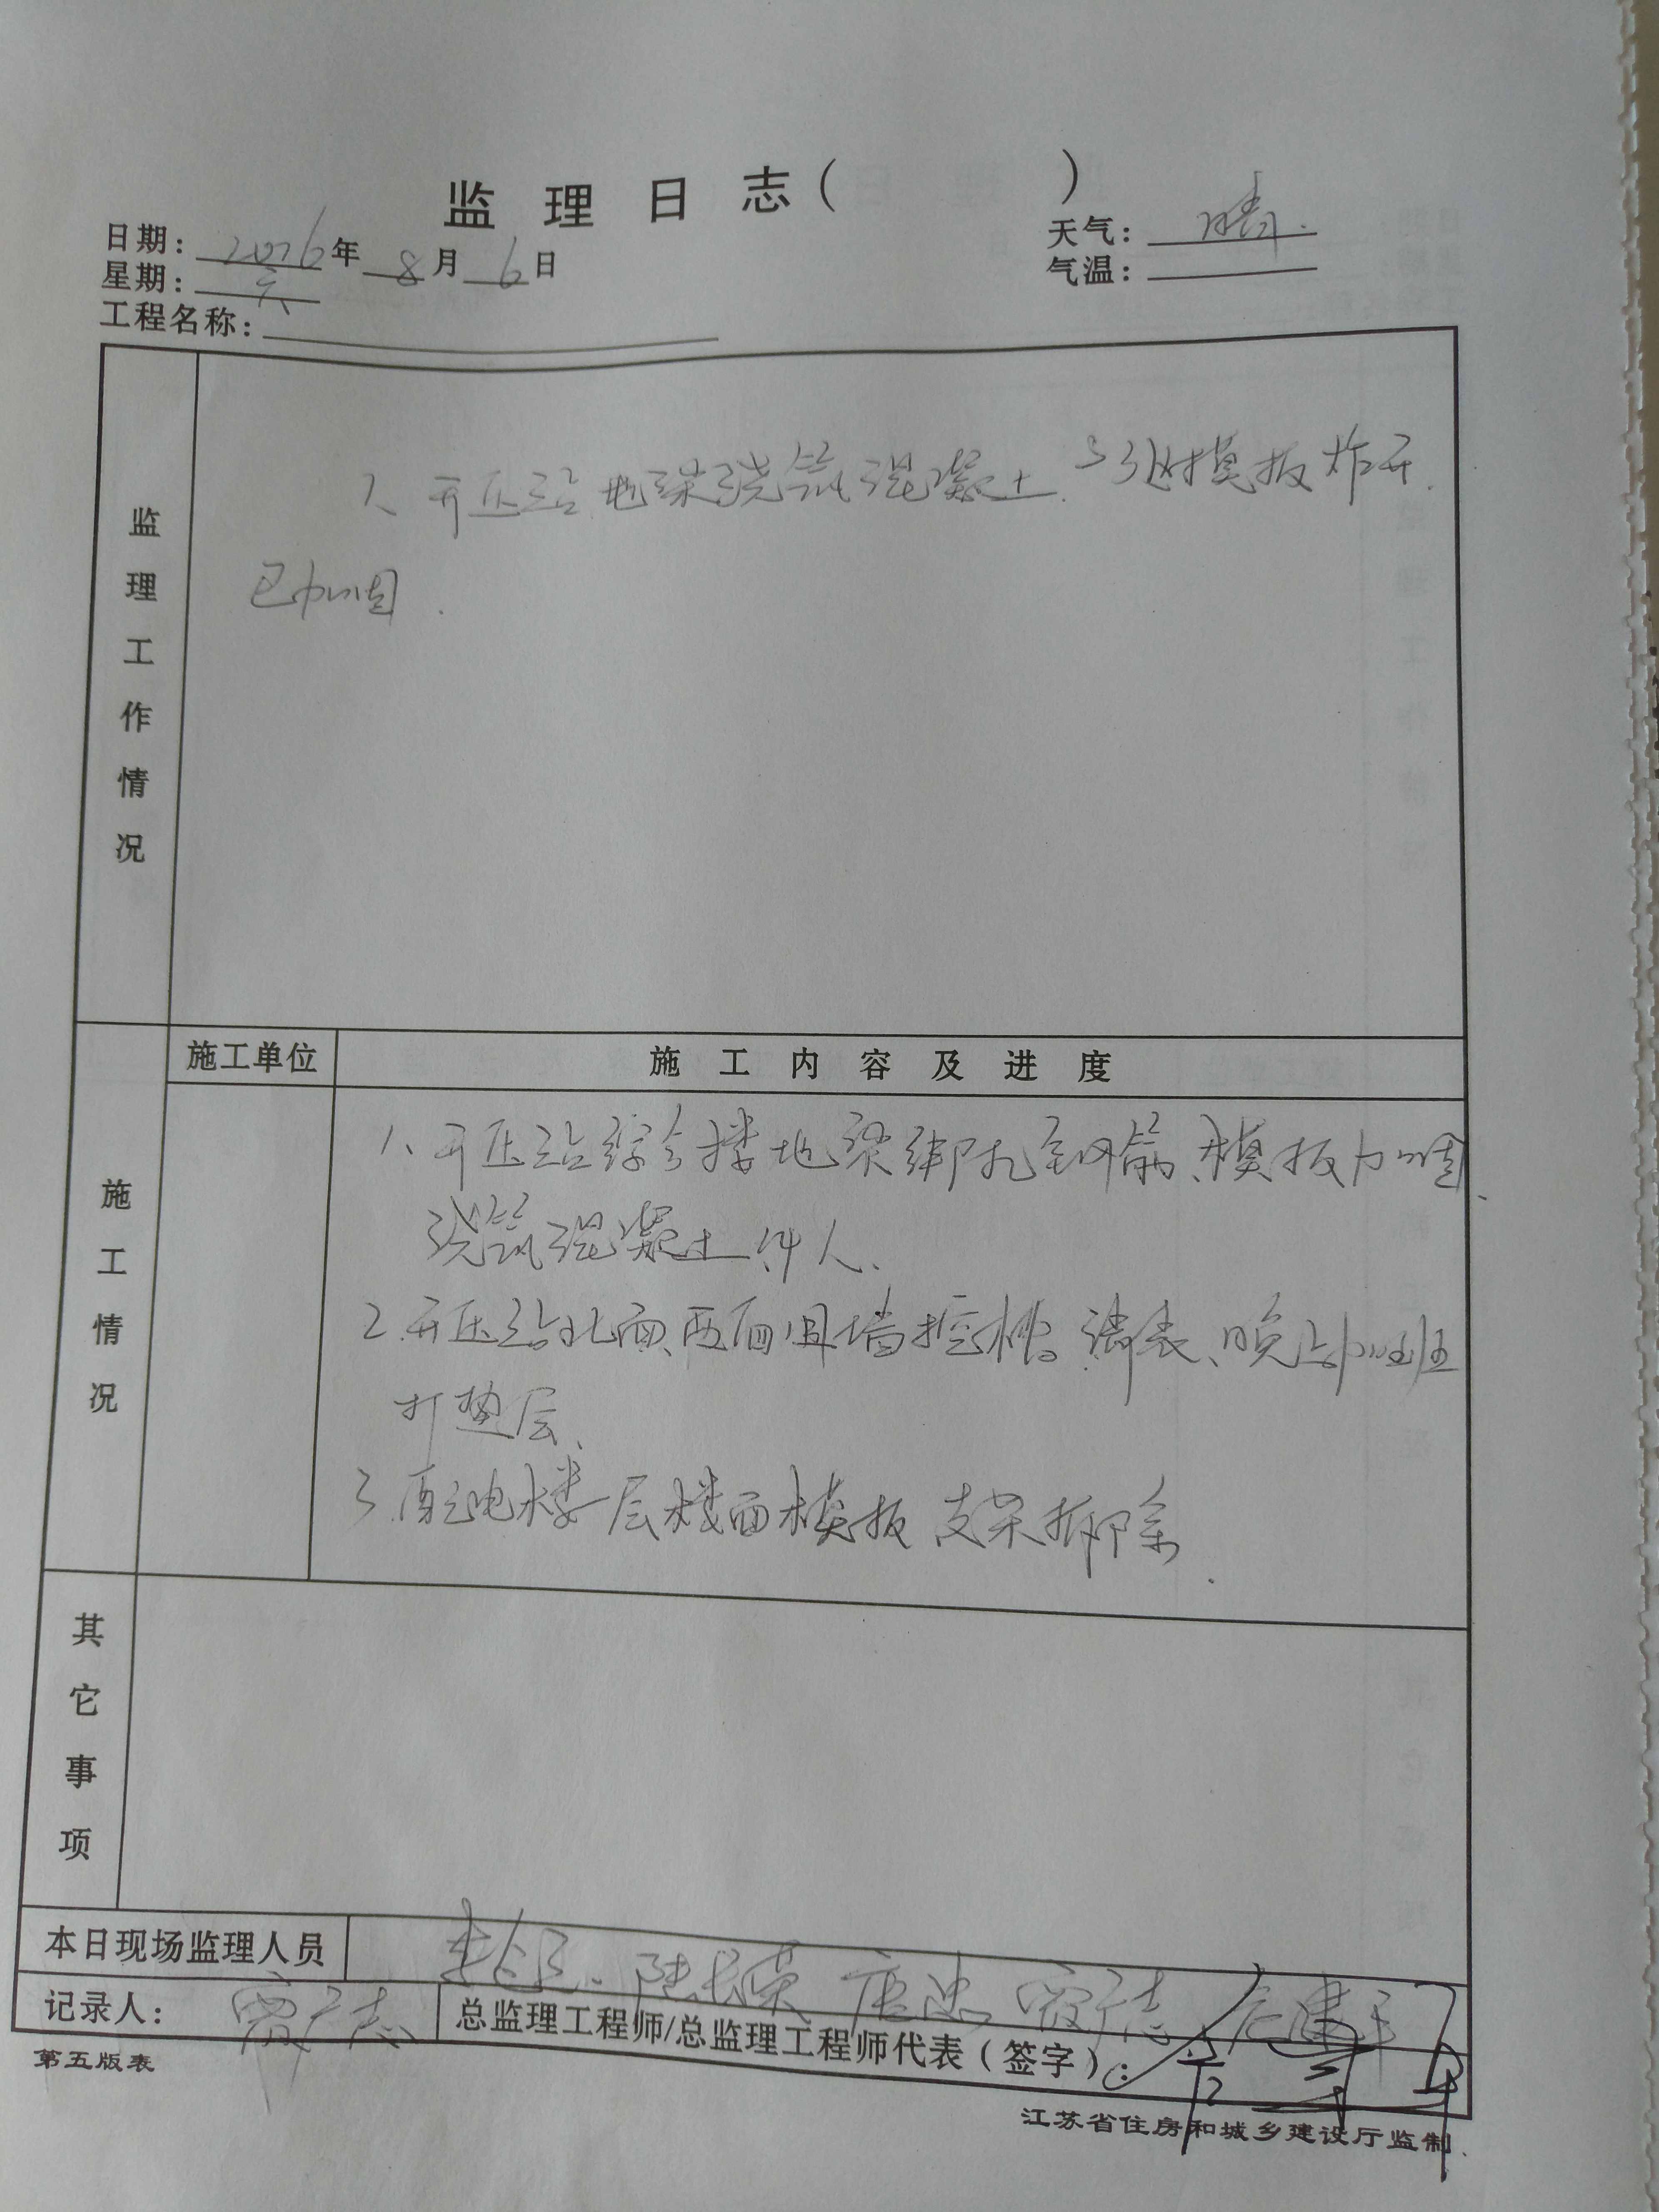 监理日志（ ）
日期：2016年8月6日
天气：晴.
星期：六
气温：
工程名称：
监理工作情况
1、开压站地梁浇筑混凝土. 模板炸开.
已加固.
施工单位
施工内容及进度
施工情况
1、开压站综合楼地梁绑扎钢筋、模板加固、
浇筑混凝土 人、
2.开压站北面、西面围墙挖槽、清表、晚上加班
打垫层、
3.配电楼一层楼面模板支架拆除.
其它事项
本日现场监理人员
记录人：
总监理工程师/总监理工程师代表（签字）：
第五版表
江苏省住房和城乡建设厅监制